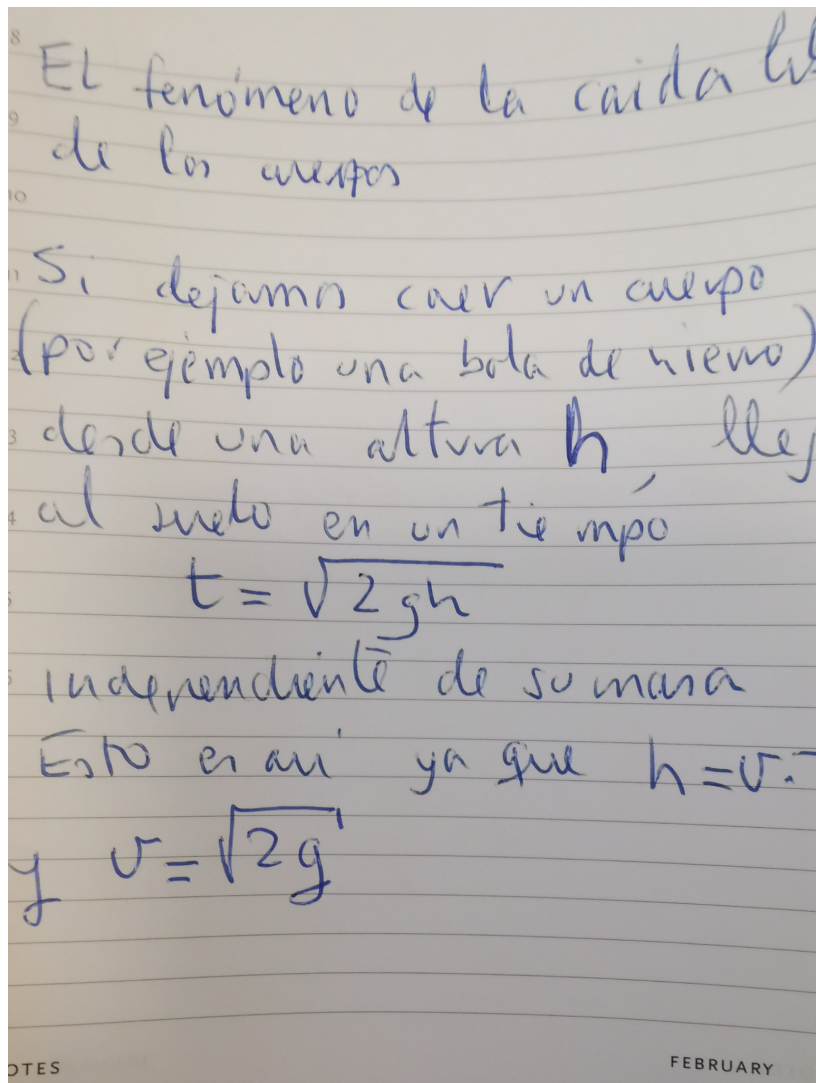 8
El fenómeno de la caida
9
de los cuerpos
10
11 Si dejamos caer un cuerpo
(por ejemplo una bola de hierro)
3 desde una altura h, lleg
4 al suelo en un tiempo
t = √2gh
independiente de su masa
Esto es así ya que h = v.
y v = √2g
OTES
FEBRUARY